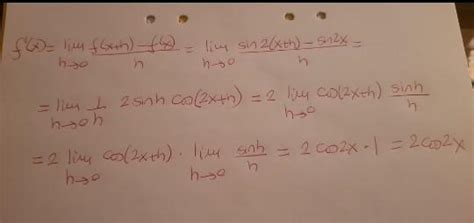 f'(x)= lim h→0 f(x+h)-f(x)/h = lim h→0 sin2(x+h)-sin2x/h =
= lim h→0 1/h 2sinh cos(2x+h) = 2 lim h→0 cos(2x+h) sinh/h
= 2 lim h→0 cos(2x+h) · lim h→0 sinh/h = 2cos2x · 1 = 2cos2x